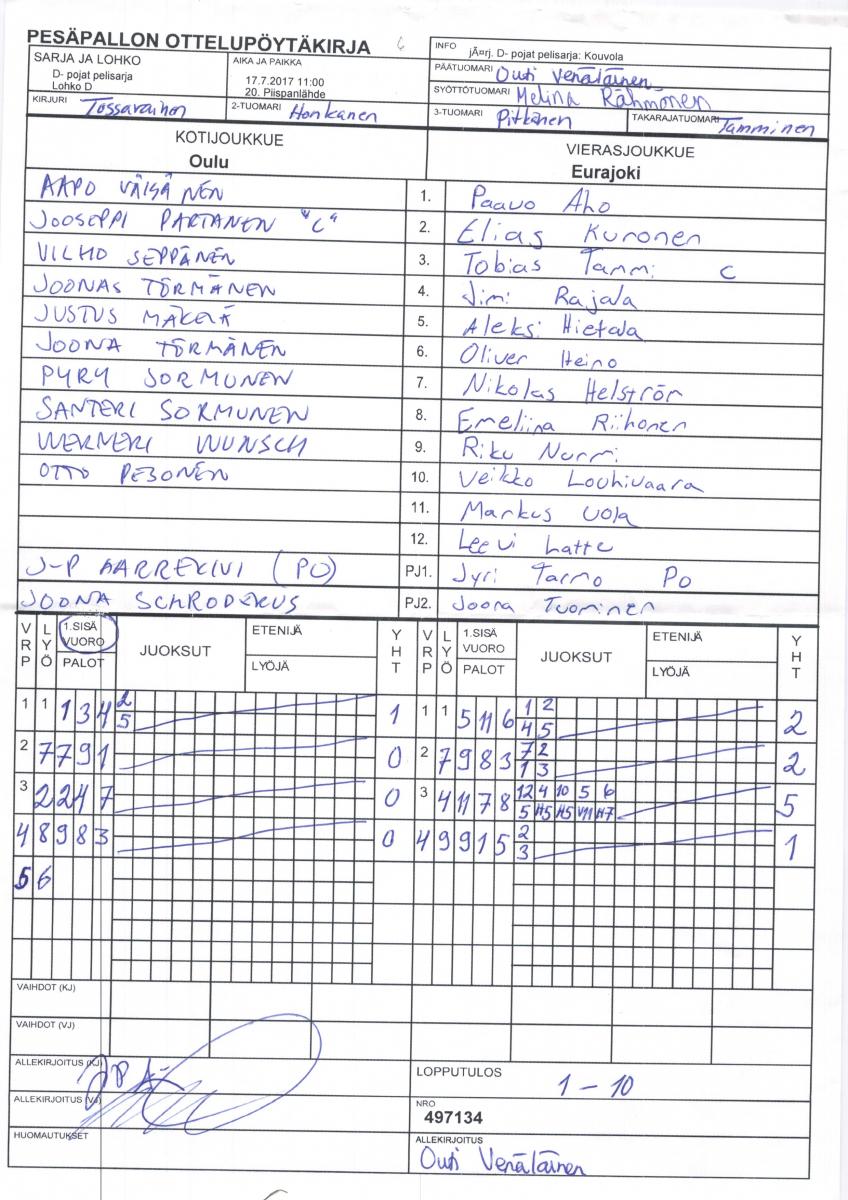 PESÄPALLON OTTELUPÖYTÄKIRJA
SARJA JA LOHKO
D- pojat pelisarja
Lohko D
AIKA JA PAIKKA
17.7.2017 11:00
20. Piispanlähde
INFO jÃ¤rj. D- pojat pelisarja: Kouvola
PÄÄTUOMARI Outi Venäläinen
SYÖTTÖTUOMARI Melina Rähmönen
KIRJURI Tossavainen
2-TUOMARI Honkanen
3-TUOMARI Pitkänen
TAKARAJATUOMARI Tamminen
KOTIJOUKKUE
Oulu
VIERASJOUKKUE
Eurajoki
AAPO VÄISÄNEN 1. Paavo Aho
JOOSEPPI PARTANEN "C" 2. Elias Kuronen
VILHO SEPPÄNEN 3. Tobias Tammi C
JOONAS TÖRMÄNEN 4. Jimi Rajala
JUSTUS MÄKELÄ 5. Aleksi Hietala
JOONA TÖRMÄNEN 6. Oliver Heino
PYRY SORMUNEN 7. Nikolas Helström
SANTERI SORMUNEN 8. Emeliina Riihonen
WERMERI WUNSCH 9. Riku Nurmi
OTTO PESONEN 10. Veikko Louhivaara
11. Markus Uola
12. Leevi Latte
J-P AARREKIVI (PO) PJ1. Jyri Tarmo Po
JOONA SCHRODERUS PJ2. Joona Tuominen
VRP LYÖ 1.SISÄ VUORO PALOT JUOKSUT ETENIJÄ LYÖJÄ YHT VRP LYÖ 1.SISÄ VUORO PALOT JUOKSUT ETENIJÄ LYÖJÄ YHT
1 1 1 3 4 2 1 1 1 5 11 6 1 2 2
5 4 5
2 7 7 9 1 0 2 7 9 8 3 7 2 2
1 3
3 2 2 4 7 0 3 4 11 7 8 12 4 10 5 6 5
5 H5 H5 V11 H7
4 8 9 8 3 0 4 9 9 1 5 2 1
3
5 6
VAIHDOT (KJ)
VAIHDOT (VJ)
ALLEKIRJOITUS (KJ)
LOPPUTULOS 1 - 10
ALLEKIRJOITUS (VJ)
NRO
497134
HUOMAUTUKSET
ALLEKIRJOITUS
Outi Venäläinen